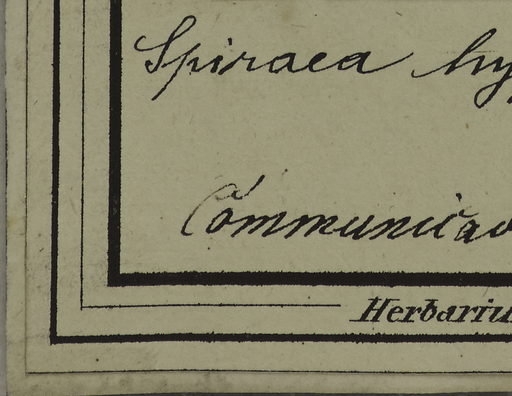 Spiraea hy
Communicav
Herbariu